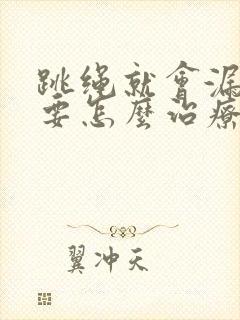 跳绳就會漏
要怎麼治療
翼冲天